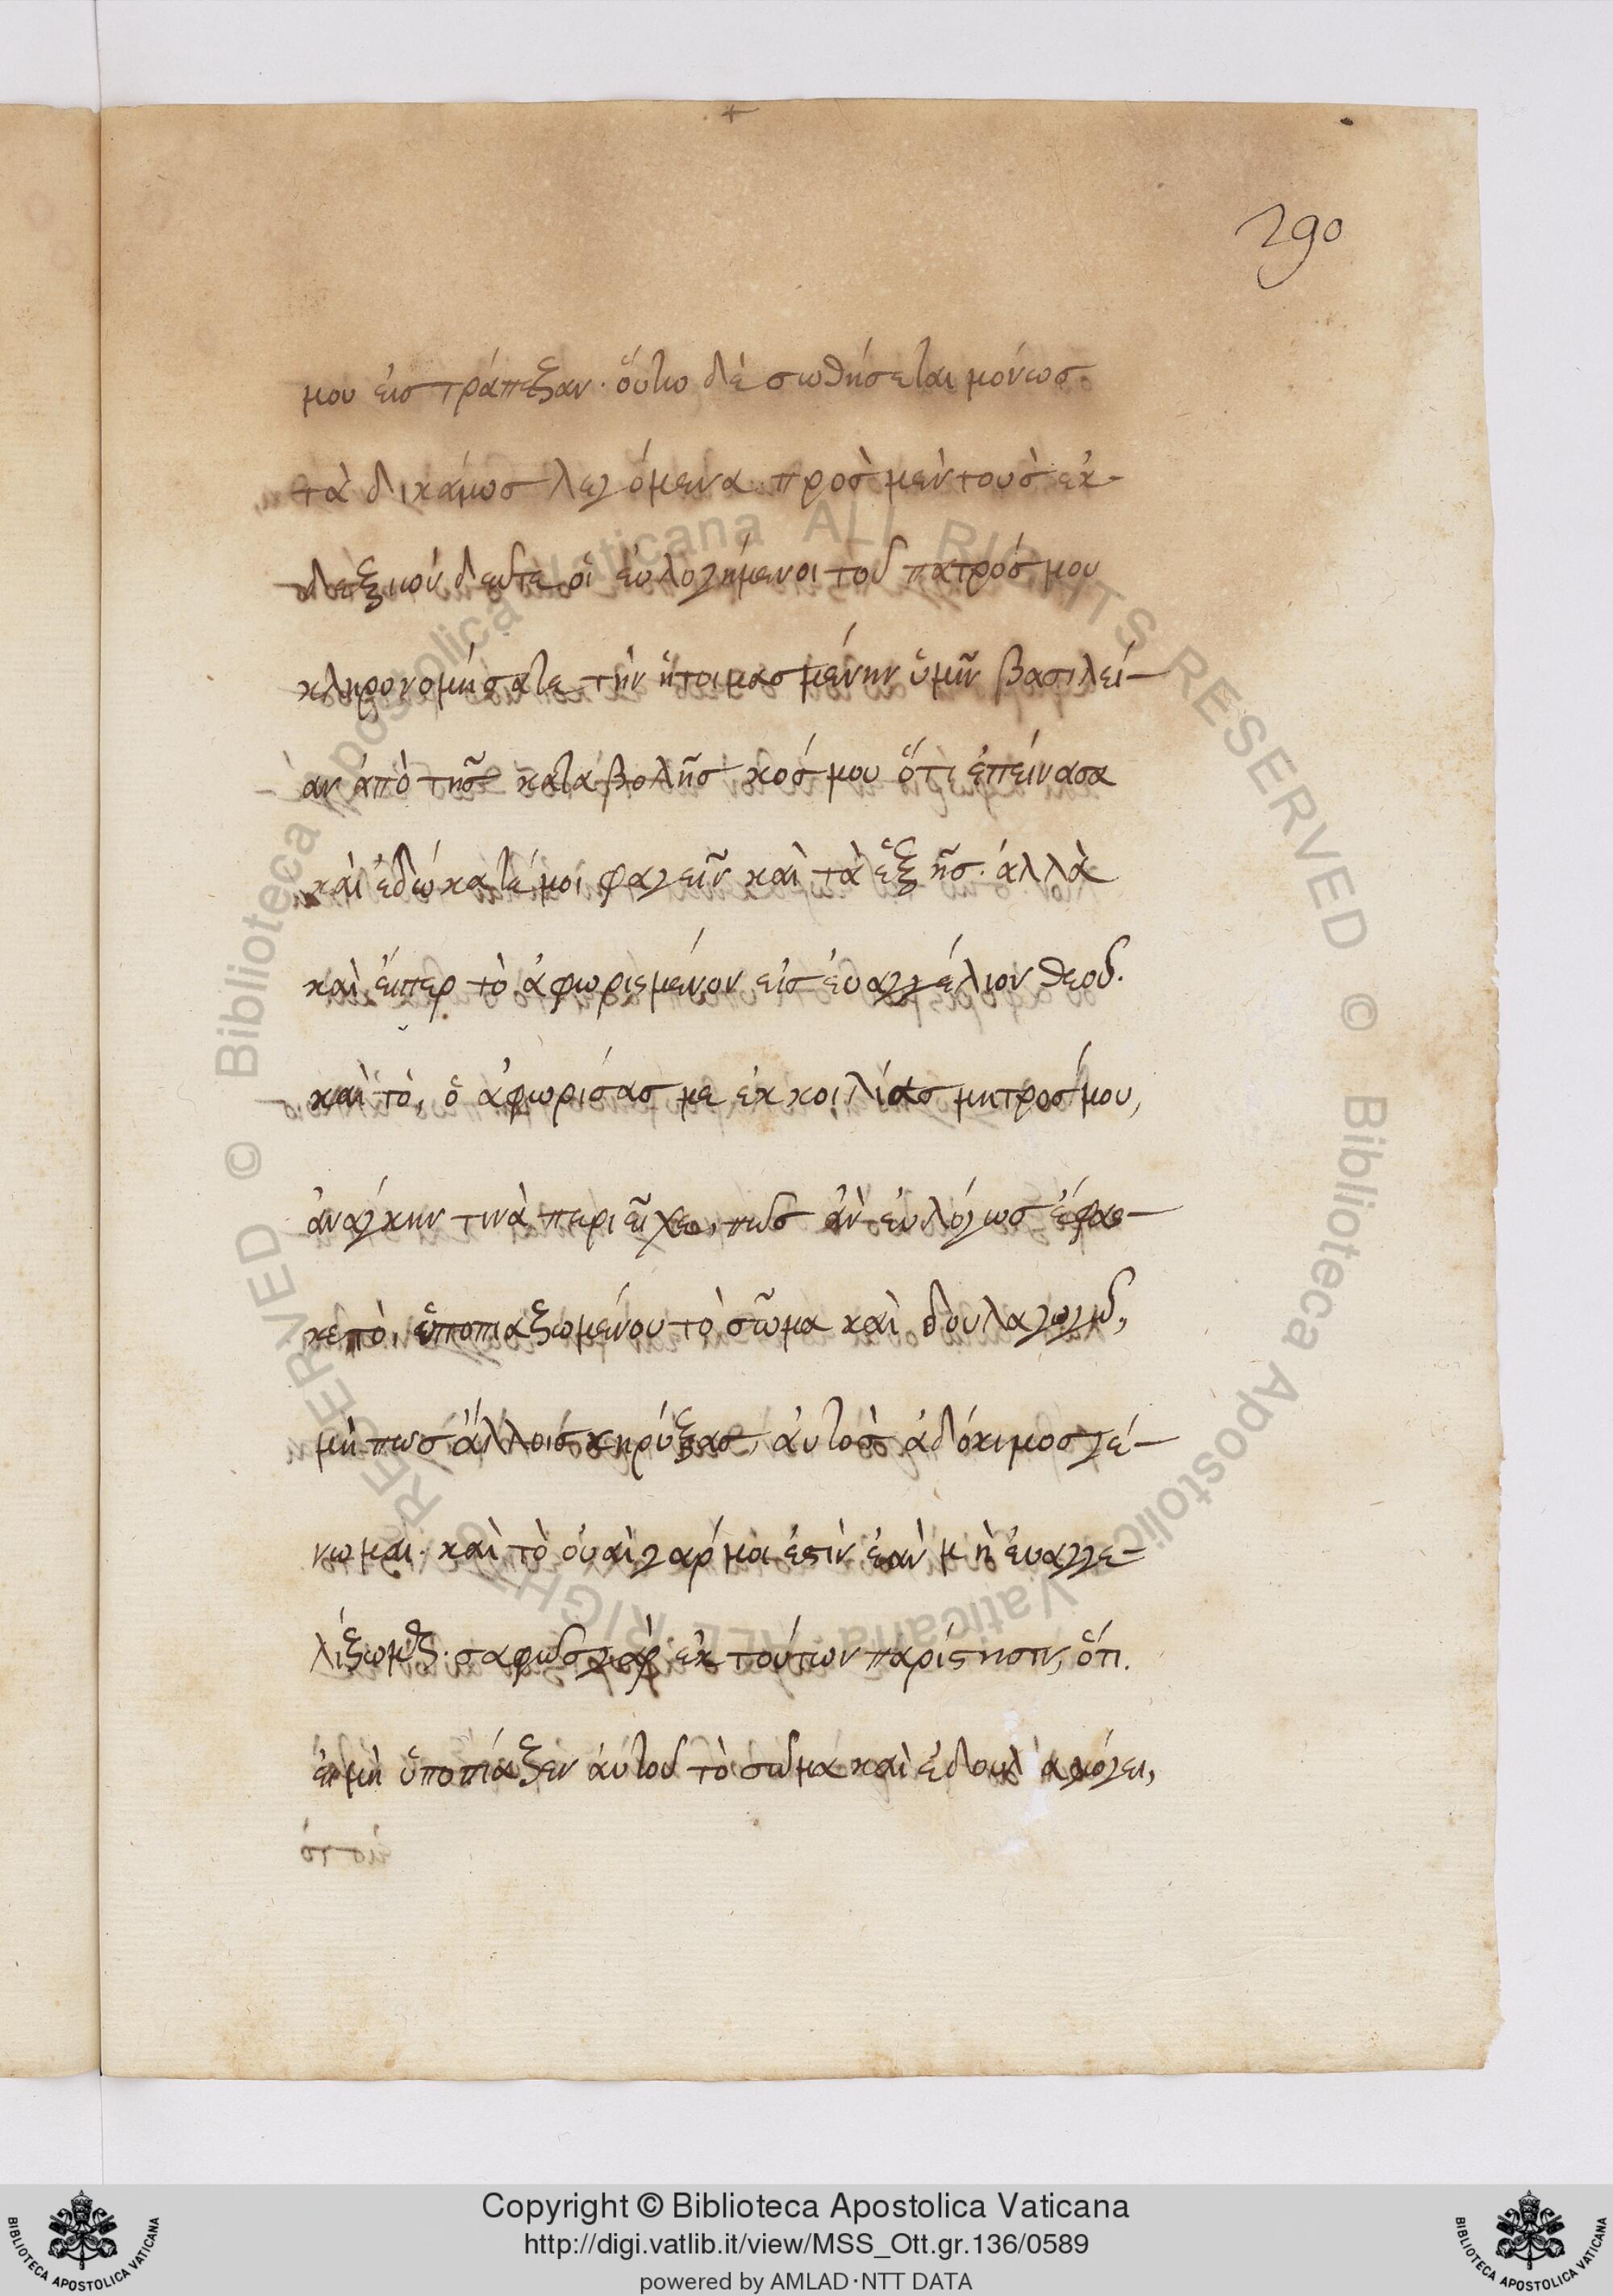 290
μου εἰς τράπεζαν· ὅυτω δὲ σωθήσεται μόνως
τὰ δικάιως λεγόμενα πρὸς μὲν τοὺς ἐκ
δεξιῶν δεῦτε οἱ ἐυλογήμενοι τοῦ πατρός μου
κληρονομήσατε τὴν ἡτοιμασμένην ὑμῖν βασιλεί-
αν ἀπὸ τῆς καταβολῆς κόσμου ὅτι ἐπείνασα
καὶ ἐδώκατέ μοι φαγεῖν καὶ τὰ ἑξῆς. ἀλλὰ
καὶ ἐίπερ τὸ ἀφωρισμένον εἰς ἐυαγγέλιον θεοῦ.
καὶ τὸ, ὁ ἀφωρίσας με ἐκ κοιλίας μητρός μου,
ἀνάγκην τινὰ περιεῖχε, πῶς ἂν ἐυλόγως ἔφας-
κε τὸ, ὑποπιαζωμένου τὸ σῶμα καὶ δουλαγωγῶ,
μή πως ἄλλοις κηρύξας, ἀυτὸς ἀδόκιμος γέ-
νωμαι. καὶ τὸ ὀυαὶ γάρ μοι ἐςὶν ἐὰν μὴ ἐυαγγε-
λίζωμαι. σαφῶς γὰρ ἐκ τούτων παρίςησιν, ὅτι.
ἐι μὴ ὑποπίαζεν ἀυτοῦ τὸ σῶμα καὶ ἐδουλαγώγει,
Copyright © Biblioteca Apostolica Vaticana
http://digi.vatlib.it/view/MSS_Ott.gr.136/0589
powered by AMLAD·NTT DATA
BIBLIOTECA APOSTOLICA VATICANA
BIBLIOTECA APOSTOLICA VATICANA
© Biblioteca Apostolica Vaticana ALL RIGHTS RESERVED © Biblioteca Apostolica Vaticana ALL RIGHTS RESERVED